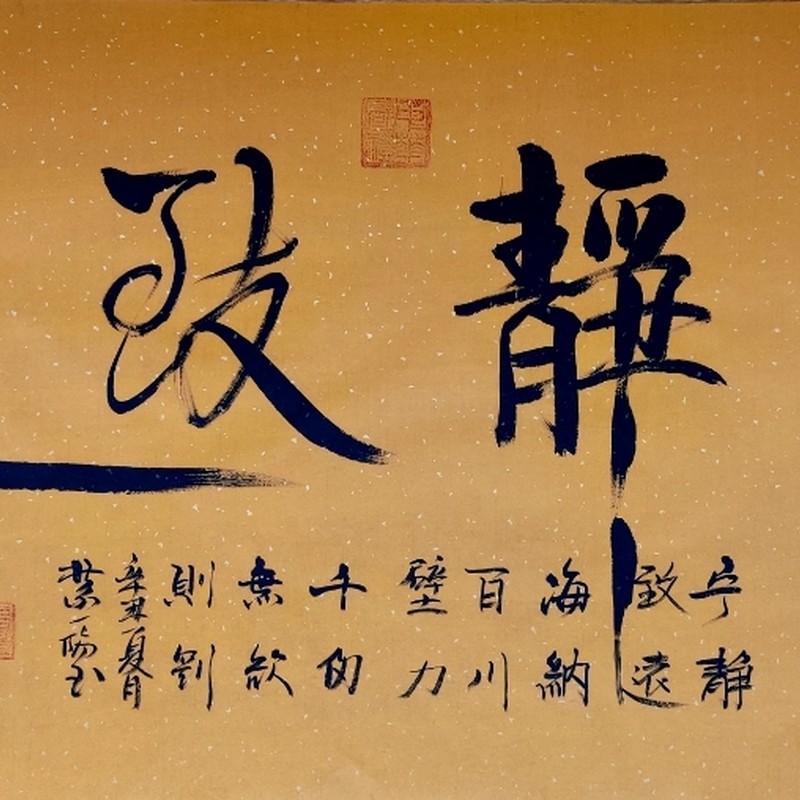 靜致
宁靜
致遠
海納
百川
壁力
千仞
無欲
則剛
辛丑夏月